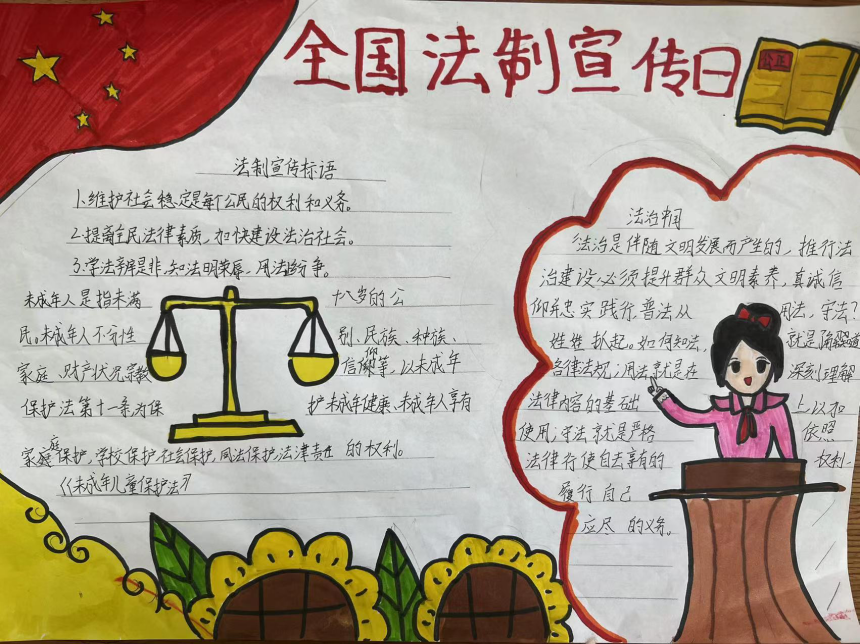 全国法制宣传日
公正
法制宣传标语
1.维护社会稳定是每个公民的权利和义务。
2.提高全民法律素质,加快建设法治社会。
3.学法辨是非,知法明荣辱,用法止纷争。
未成年人是指未满十八岁的公
民。未成年人不分性别、民族、种族、
家庭、财产状况宗教信仰等,以未成年
保护法第十一条为保护未成年健康、未成年人享有
家庭保护,学校保护,社会保护,司法保护,法津责任的权利。
《未成年儿童保护法》
法治中国
法治是伴随文明发展而产生的,推行法
治建设必须提升群众文明素养,真诚信
仰并忠实践行。普法从用法,守法?
姓姓扒起。如何知法,就是
各律法规;用法就是在深刻理解
法律内容的基础上以扣
使用,守法就是严格依照
法律行使自去享有的权利.
履行自己
应尽的义务。